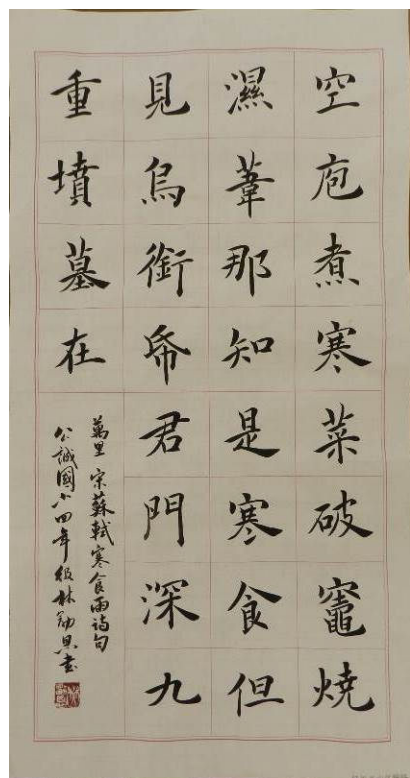 空庖煮寒菜破竈燒
濕葦那知是寒食但
見烏銜帋君門深九
重墳墓在
萬里 宋蘇軾寒食雨詩句
公誠國小四年級林書